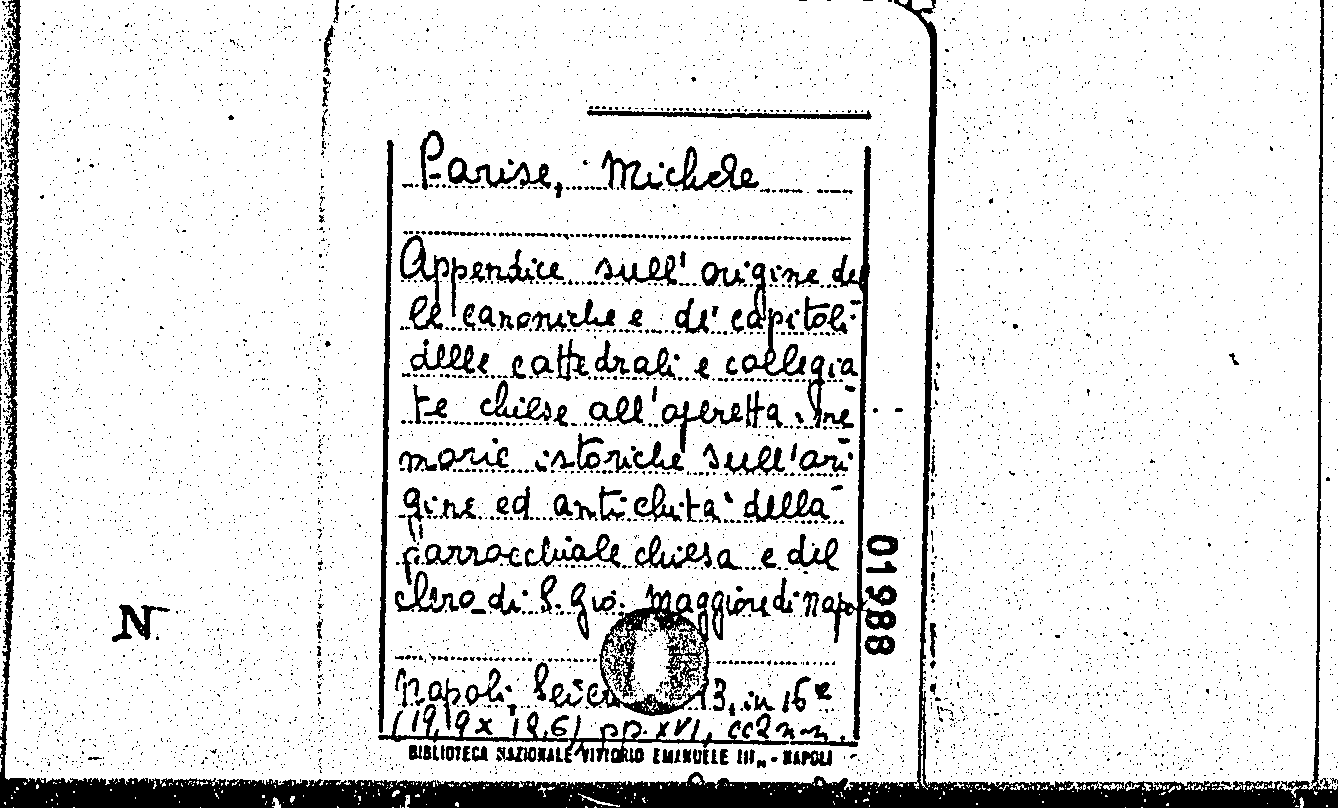 Parise, Michele
Appendice sull' origine del
le canoniche e de' capitoli
delle cattedrali e collegia
te chiese all'operetta: Me
morie istoriche sull'ori
gine ed antichità della
parrocchiale chiesa e del
clero di S. Gio. Maggiore di Napol
01988
N
Napoli, 13, in 16º
(19,9 x 12,6) pp. XVI, cc2 n-n.
BIBLIOTECA NAZIONALE VITTORIO EMANUELE III - NAPOLI